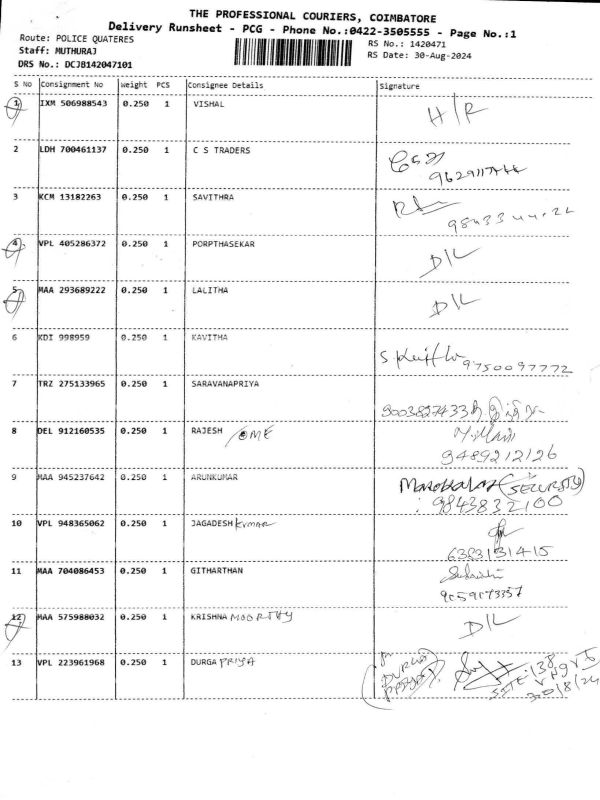 THE PROFESSIONAL COURIERS, COIMBATORE
Delivery Runsheet - PCG - Phone No.:0422-3505555 - Page No.:1
Route: POLICE QUATERES
RS No.: 1420471
Staff: MUTHURAJ
RS Date: 30-Aug-2024
DRS No.: DCJB142047101
S No Consignment No Weight PCS Consignee Details Signature
1 IXM 506988543 0.250 1 VISHAL H/R
2 LDH 700461137 0.250 1 C S TRADERS
3 KCM 13182263 0.250 1 SAVITHRA
4 VPL 405286372 0.250 1 PORPTHASEKAR D/L
5 MAA 293689222 0.250 1 LALITHA D/L
6 KDI 998959 0.250 1 KAVITHA
9750097772
7 TRZ 275133965 0.250 1 SARAVANAPRIYA
9003827433
8 DEL 912160535 0.250 1 RAJESH
9489212126
9 MAA 945237642 0.250 1 ARUNKUMAR (SECURITY)
9843832100
10 VPL 948365062 0.250 1 JAGADESH KUMAR
6383131415
11 MAA 704086453 0.250 1 GITHARTHAN
12 MAA 575988032 0.250 1 KRISHNA MOORTHY D/L
13 VPL 223961968 0.250 1 DURGA PRIYA
SITE:138
30/8/24